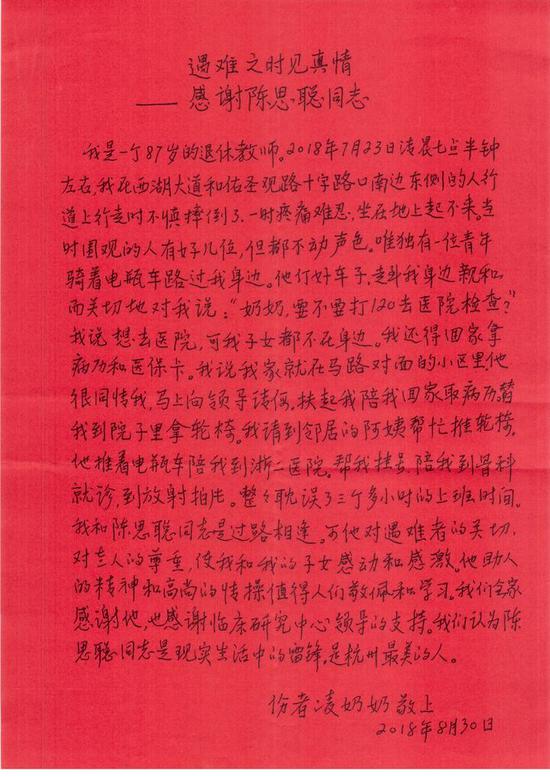 遇难之时见真情
——感谢陈思聪同志
我是一个87岁的退休教师。2018年7月23日凌晨七点半钟
左右,我在西湖大道和佑圣观路十字路口南边东侧的人行
道上行走时不慎摔倒了,一时疼痛难忍,坐在地上起不来。当
时围观的人有好几位,但都不动声色。唯独有一位青年
骑着电瓶车路过我身边。他停好车子,走到我身边亲和
而关切地对我说:“奶奶,要不要打120去医院检查?”
我说想去医院,可我子女都不在身边。我还得回家拿
病历和医保卡。我说我家就在马路对面的小区里,他
很同情我,马上向领导请假,扶起我陪我回家取病历。替
我到院子里拿轮椅。我请到邻居的阿姨帮忙推轮椅,
他推着电瓶车陪我到浙二医院。帮我挂号,陪我到骨科
就诊,到放射拍片。整整耽误了三个多小时的上班时间。
我和陈思聪同志是过路相逢。可他对遇难者的关切,
对老人的尊重,使我和我的子女感动和感激。他助人
的精神和高尚的情操值得人们敬佩和学习。我们全家
感谢他,也感谢临床研究中心领导的支持。我们认为陈
思聪同志是现实生活中的雷锋,是杭州最美的人。
伤者凌奶奶敬上
2018年8月30日